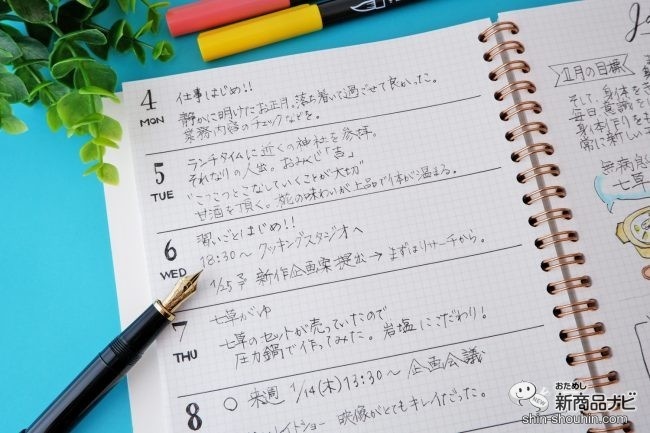 4
MON
仕事はじめ!!
静かに明けたお正月。落ち着いて過ごせて良かった。
業務内容のチェックなどを。
5
TUE
ランチタイムに近くの神社を参拝。
それなりの人出。おみくじ「吉」
"こつこつとこなしていくことが大切"
甘酒を頂く。糀の味わいが上品で体が温まる。
6
WED
習いごとはじめ!!
18:30~ クッキングスタジオへ
1/25予 新作企画案提出→まずはリサーチから。
7
THU
七草がゆ
七草のセットが売っていたので
圧力鍋で作ってみた。岩塩にこだわり!
8
○ 来週 1/14(木)13:30~ 企画会議
ショー 映像がとてもキレイだった。
正月の目標
そして、身体を
毎日意識を
身体作りをも
常に新しい
無病息
七草
おためし
新商品ナビ
shin-shouhin.com